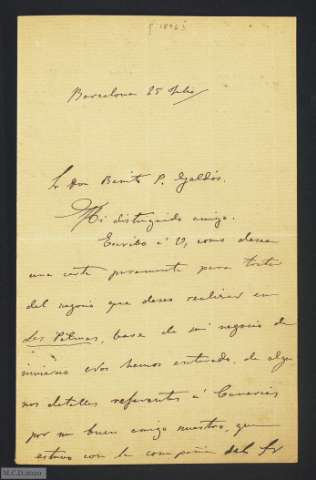 [1896]
Barcelona 25 Julio
Sr Don Benito P. Galdós.
Mi distinguido amigo.
Escribo á V, como desea
una carta puramente para tratar
del negocio que deseo realizar en
Las Palmas, base de mi negocio de
invierno
hemos enterado, de algu
nos detalles referentes á Canarias
por un buen amigo nuestro, que
estuvo con la compañia del Sr
M.C.D. 2020